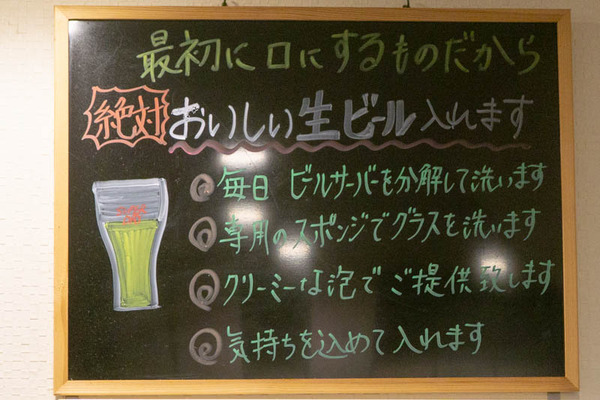 最初に口にするものだから
絶対おいしい生ビール入れます
毎日 ビールサーバーを分解して洗います
専用のスポンジでグラスを洗います
クリーミーな泡でご提供致します
気持ちを込めて入れます